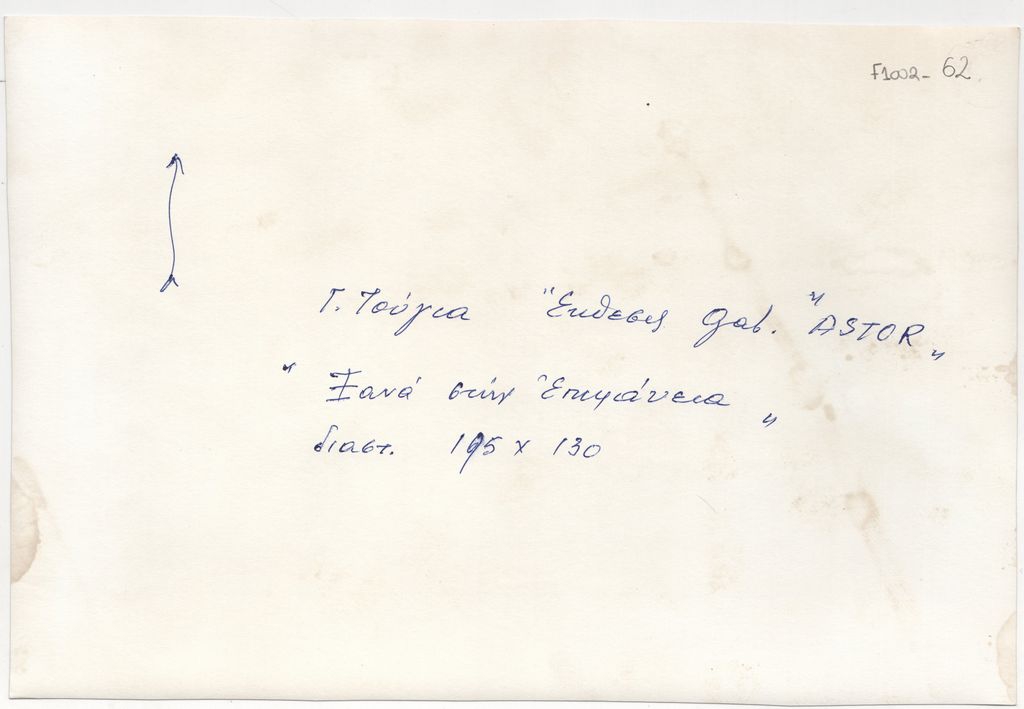 F1002-62
Γ. Τσύγια "Έκθεσις Gal. "ASTOR"
"Ξανά στήν Ἐπιφάνεια"
διαστ. 195 x 130